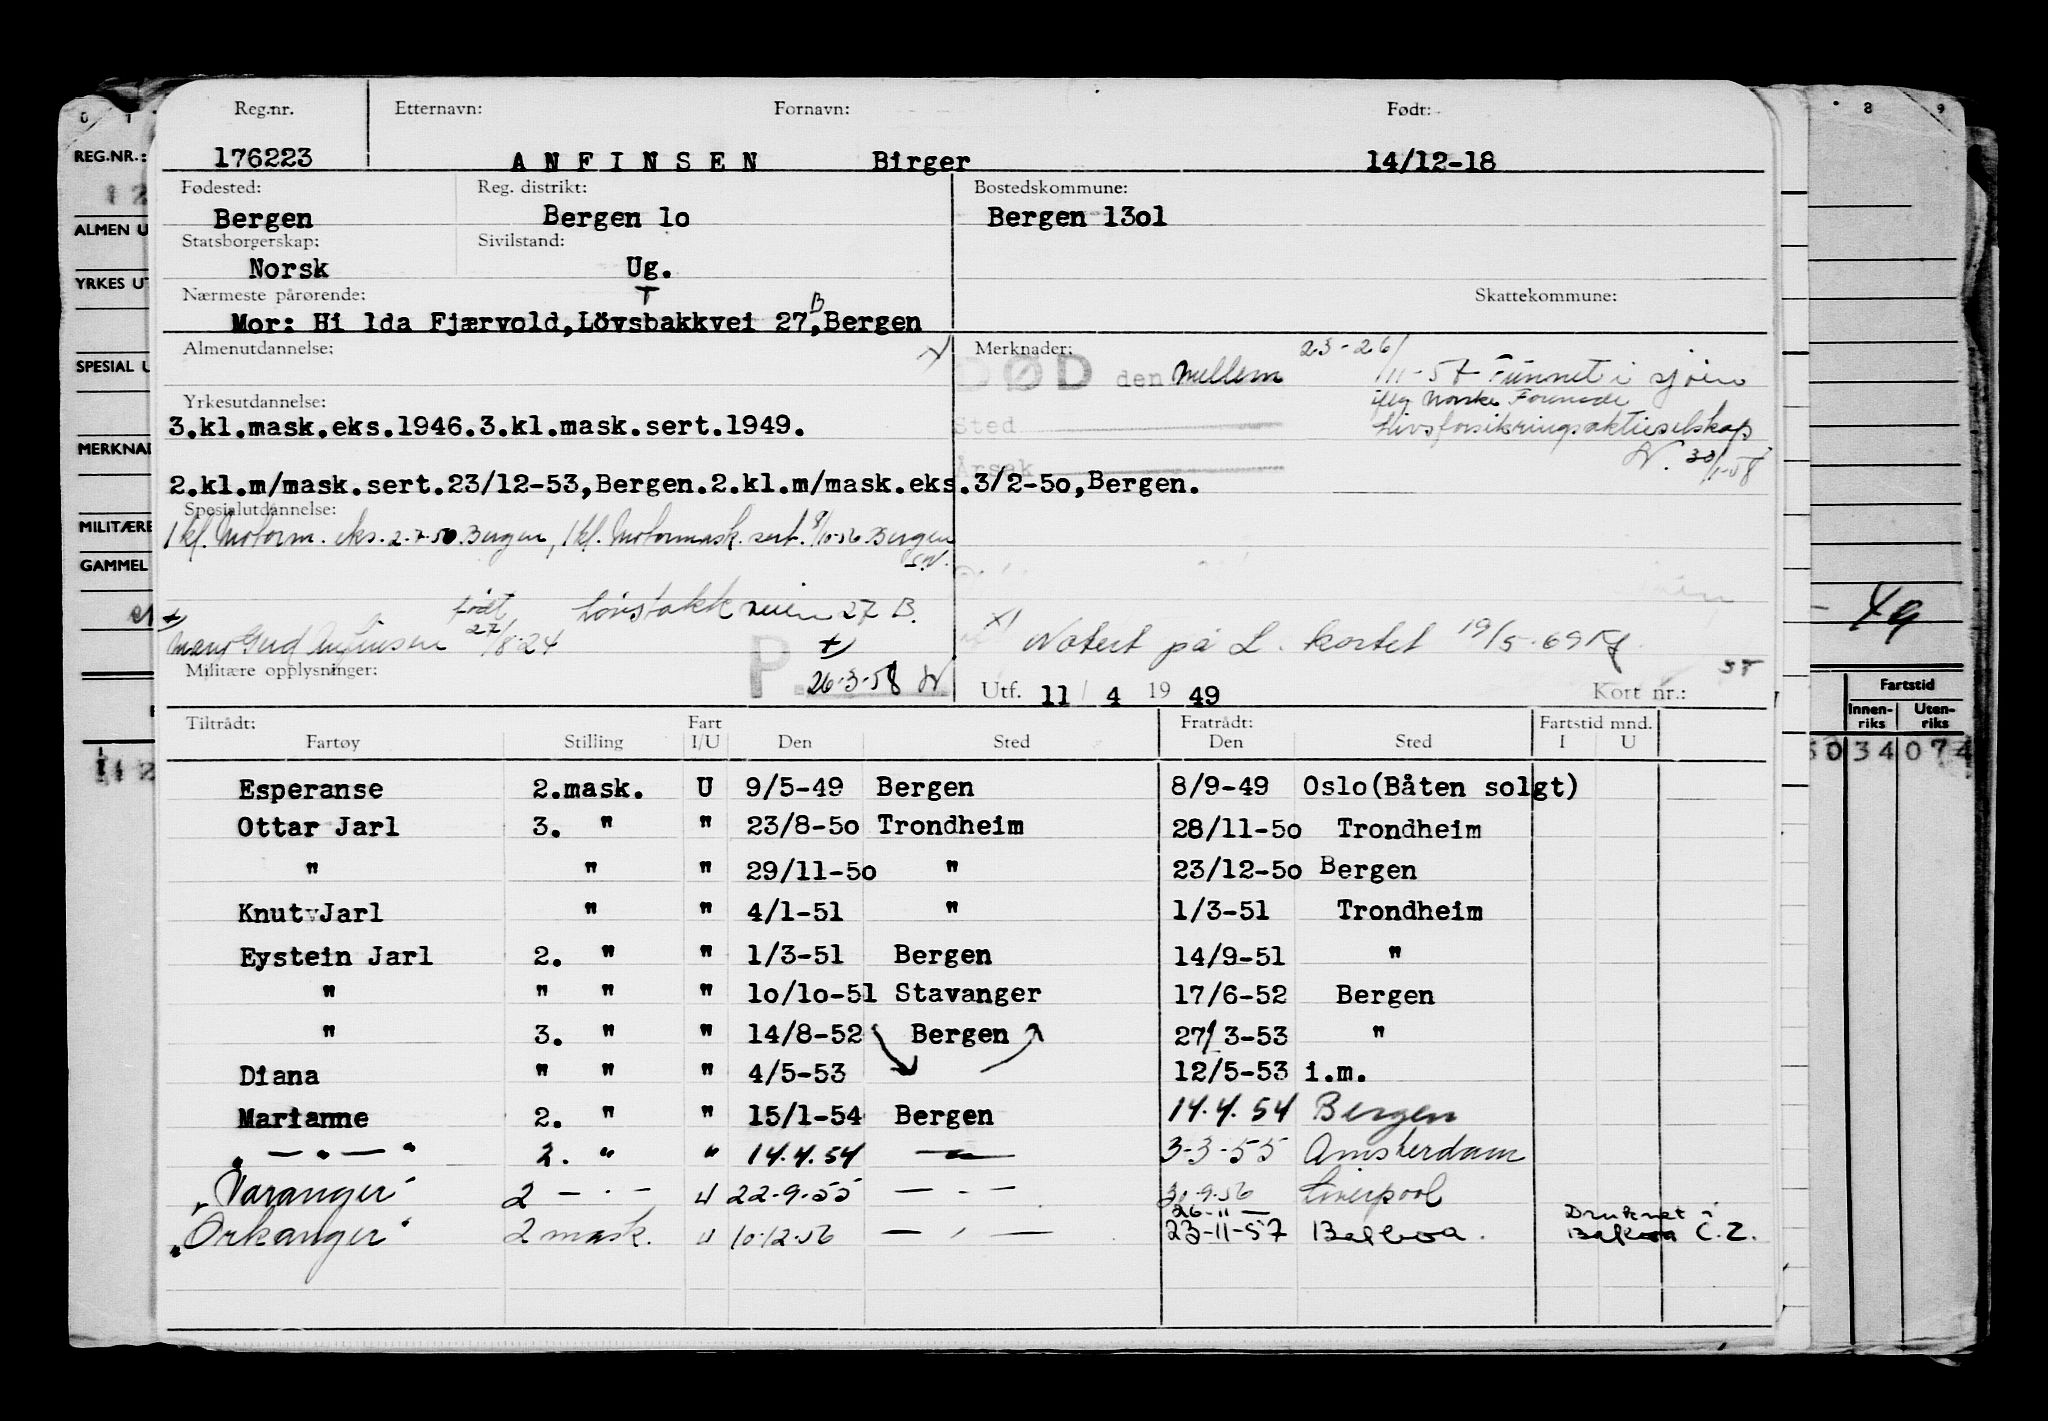 0 1
8 9
REG.NR.:
ALMEN U
YRKES UT
SPESIAL U
MERKNAD
MILITÆRE
GAMMEL
Reg.nr. Etternavn: Fornavn: Født:
176223 A N F I N S E N Birger 14/12-18
Fødested: Reg. distrikt: Bostedskommune:
Bergen Bergen lo Bergen 13o1
Statsborgerskap: Sivilstand:
Norsk Ug.
Nærmeste pårørende: Skattekommune:
Mor: Hi lda Fjærvold,Lövsbakkvei 27B,Bergen
Almenutdannelse: Merknader:
DØD den mellem 23-26/
/11-57 Funnet i sjøen
iflg Norske Forenede
Livsforsikringsaktieselskap
30/1-58
Sted
Årsak
Yrkesutdannelse:
3.kl.mask.eks.1946.3.kl.mask.sert.1949.
2.kl.m/mask.sert.23/12-53,Bergen.2.kl.m/mask.eks.3/2-5o,Bergen.
Spesialutdannelse:
1 kl. Motorm. eks. 2-7-50 Bergen, 1 kl. Motormask. sert. 9/10-56 Bergen
født Løvstakkveien 27 B.
Gerd Anfinsen 27/8-24
x) Notert på L. kortet 19/5-69
Militære opplysninger: P. 26-3-58
Utf. 11 / 4 19 49 Kort nr.:
49
Fartstid
Innen-riks Uten-riks
34 074
Tiltrådt: Fart Fratrådt: Fartstid mnd.
Fartøy Stilling I/U Den Sted Den Sted I U
Esperanse 2.mask. U 9/5-49 Bergen 8/9-49 Oslo(Båten solgt)
Ottar Jarl 3. " " 23/8-5o Trondheim 28/11-5o Trondheim
" " " 29/11-5o " 23/12-5o Bergen
Knut Jarl " " 4/1-51 " 1/3-51 Trondheim
Eystein Jarl 2. " " 1/3-51 Bergen 14/9-51 "
" " " " lo/lo-51 Stavanger 17/6-52 Bergen
" 3. " " 14/8-52 Bergen 27/3-53 "
Diana " " " 4/5-53 12/5-53 i.m.
Marianne 2. " " 15/1-54 Bergen 14.4.54 Bergen
" — " — " 2. " " 14.4.54 — " — 3-3-55 Amsterdam
"Varanger" 2 — " — U 22-9-55 — " — 30-9-56 Liverpool
26-11 —
"Orkanger" 2 mask. U 10-12-56 — " — 23-11-57 Balboa. Druknet i
Balboa C.Z.